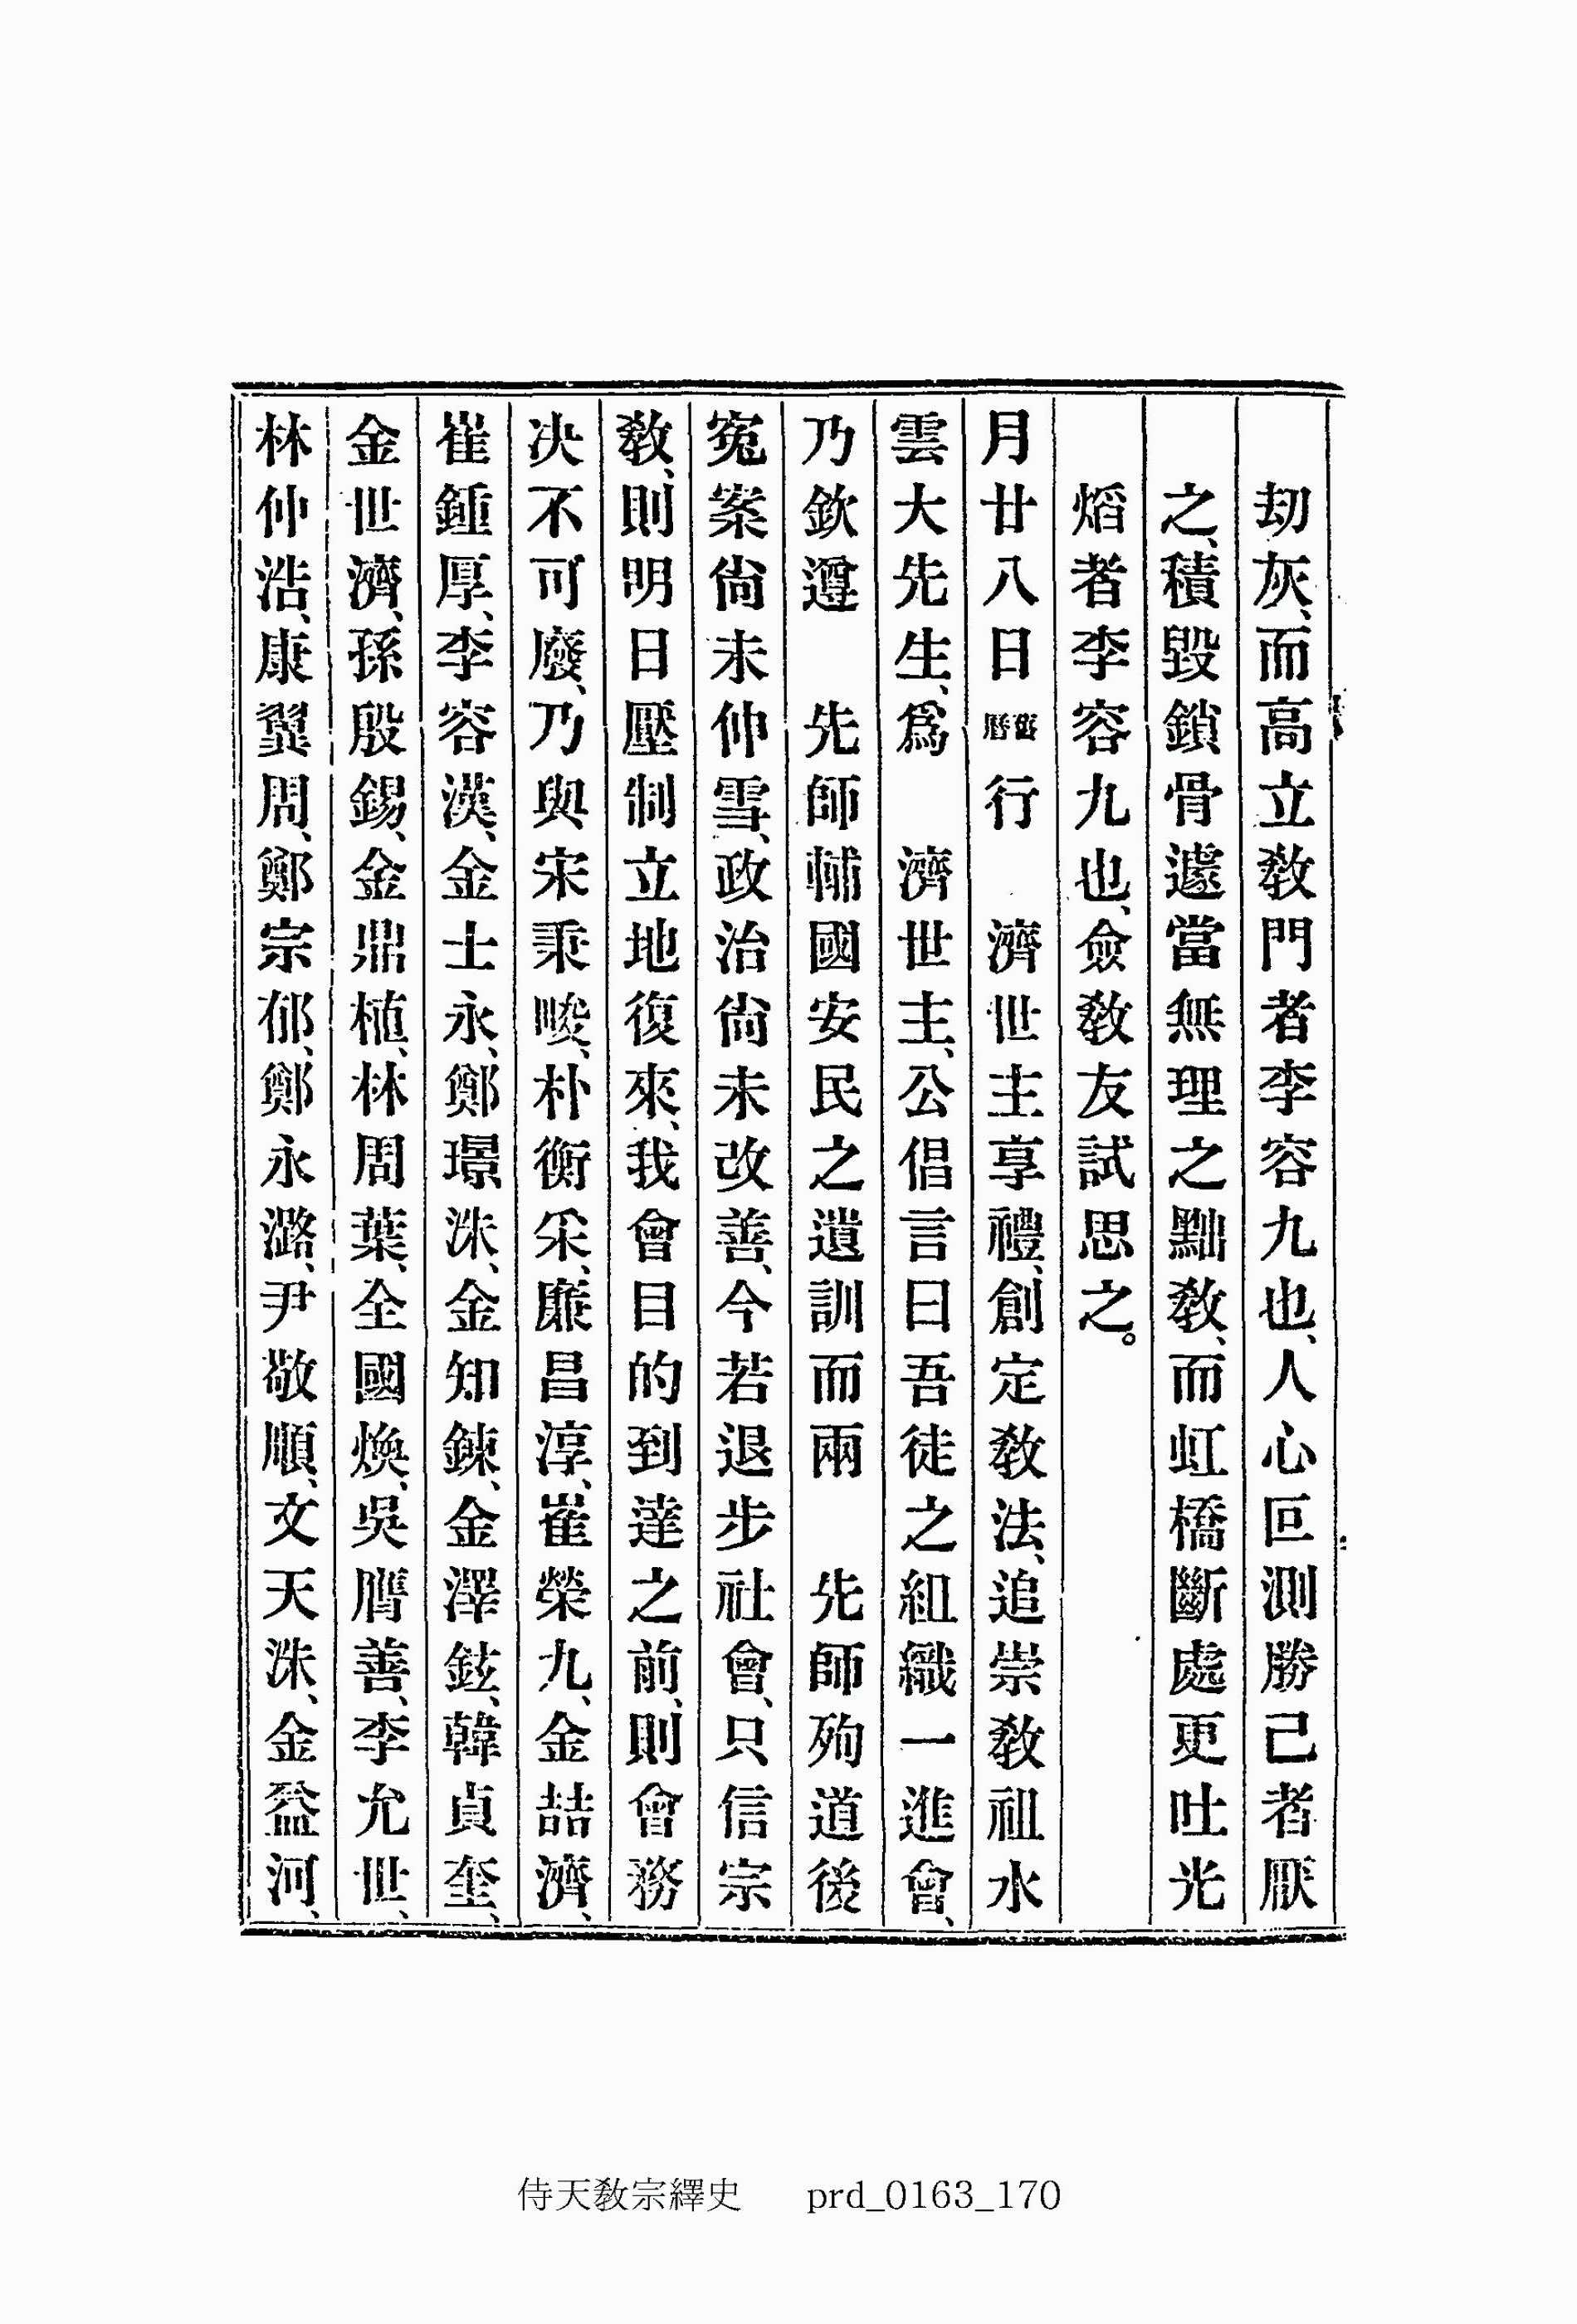 刼灰、而高立敎門者李容九也、人心叵測勝己者厭
之、積毁鎖骨遽當無理之黜敎、而虹橋斷處更吐光
熖者李容九也、僉敎友試思之。
月廿八日舊曆行　濟世主享禮、創定敎法、追崇敎祖水
雲大先生、爲　濟世主、公倡言曰吾徒之組織一進會、
乃欽遵　先師輔國安民之遺訓而兩　先師殉道後
寃案尙未伸雪、政治尙未改善、今若退步社會、只信宗
敎、則明日壓制立地復來、我會目的到達之前、則會務
决不可廢、乃與宋秉畯、朴衡采、廉昌淳、崔榮九、金喆濟、
崔鍾厚、李容漢、金士永、鄭璟洙、金知鍊、金澤鉉、韓貞奎、
金世濟、孫殷錫、金鼎植、林周葉、全國煥、吳膺善、李允世、
林仲浩、康翼周、鄭宗郁、鄭永潞、尹敬順、文天洙、金益河、
侍天敎宗繹史　prd_0163_170